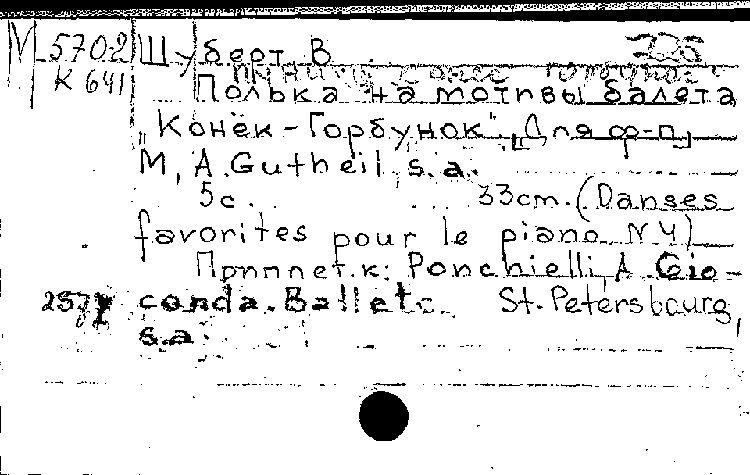 М 5702 Шуберт В.
К 641
Полька на мотивы балета
„Конёк-Горбунок". [Для ф-п]
М, A. Gutheil, s.a.
5с. 33cm. (Danses
favorites pour le piano N 4)
Приплет.к: Ponchielli, A. Gio-
conda. Balletc. St. Petersbourg,
s.a.